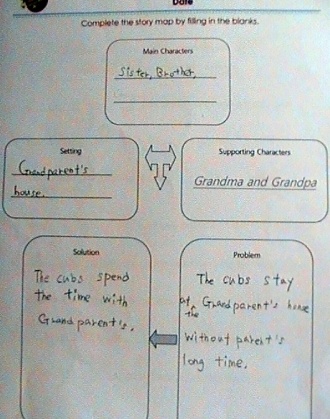 Date
Complete the story map by filling in the blanks.
Main Characters
Sister, Brother,
Setting
Grandparent's
house.
Supporting Characters
Grandma and Grandpa
Solution
The cubs spend
the time with
Grandparent's.
Problem
The cubs stay
at the Grandparent's house
without parent's
long time.